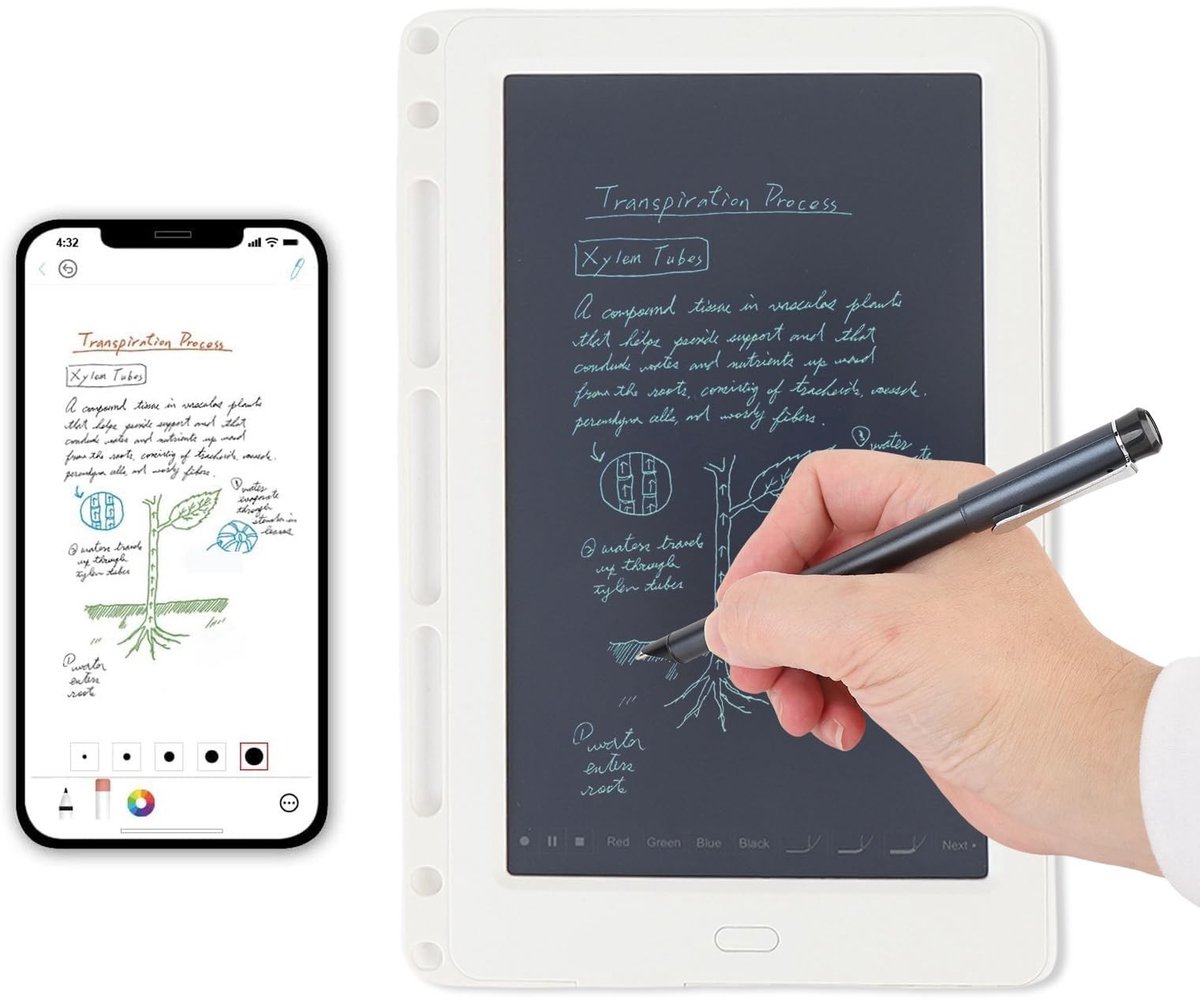 4:32
Transpiration Process
Xylem Tubes
A compound tissue in vascular plants
that helps provide support and that
conducts water and nutrients up ward
from the roots, consisting of tracheids, vessels,
parenchyma cells, and woody fibers.
① water
evaporate
through
stomata in
leaves
② waters travels
up through
xylem tubes
① water
enters
roots
Transpiration Process
Xylem Tubes
A compound tissue in vascular plants
that helps provide support and that
conducts water and nutrients up ward
from the roots, consisting of tracheids, vessels,
parenchyma cells, and woody fibers.
water
② waters travels
up through
xylem tubes
① water
enters
roots
Red Green Blue Black Next